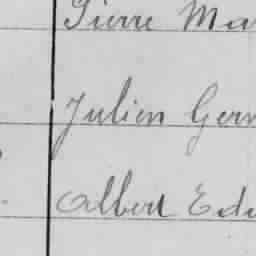 Pierre Ma
Julien Ger
Albert Edu